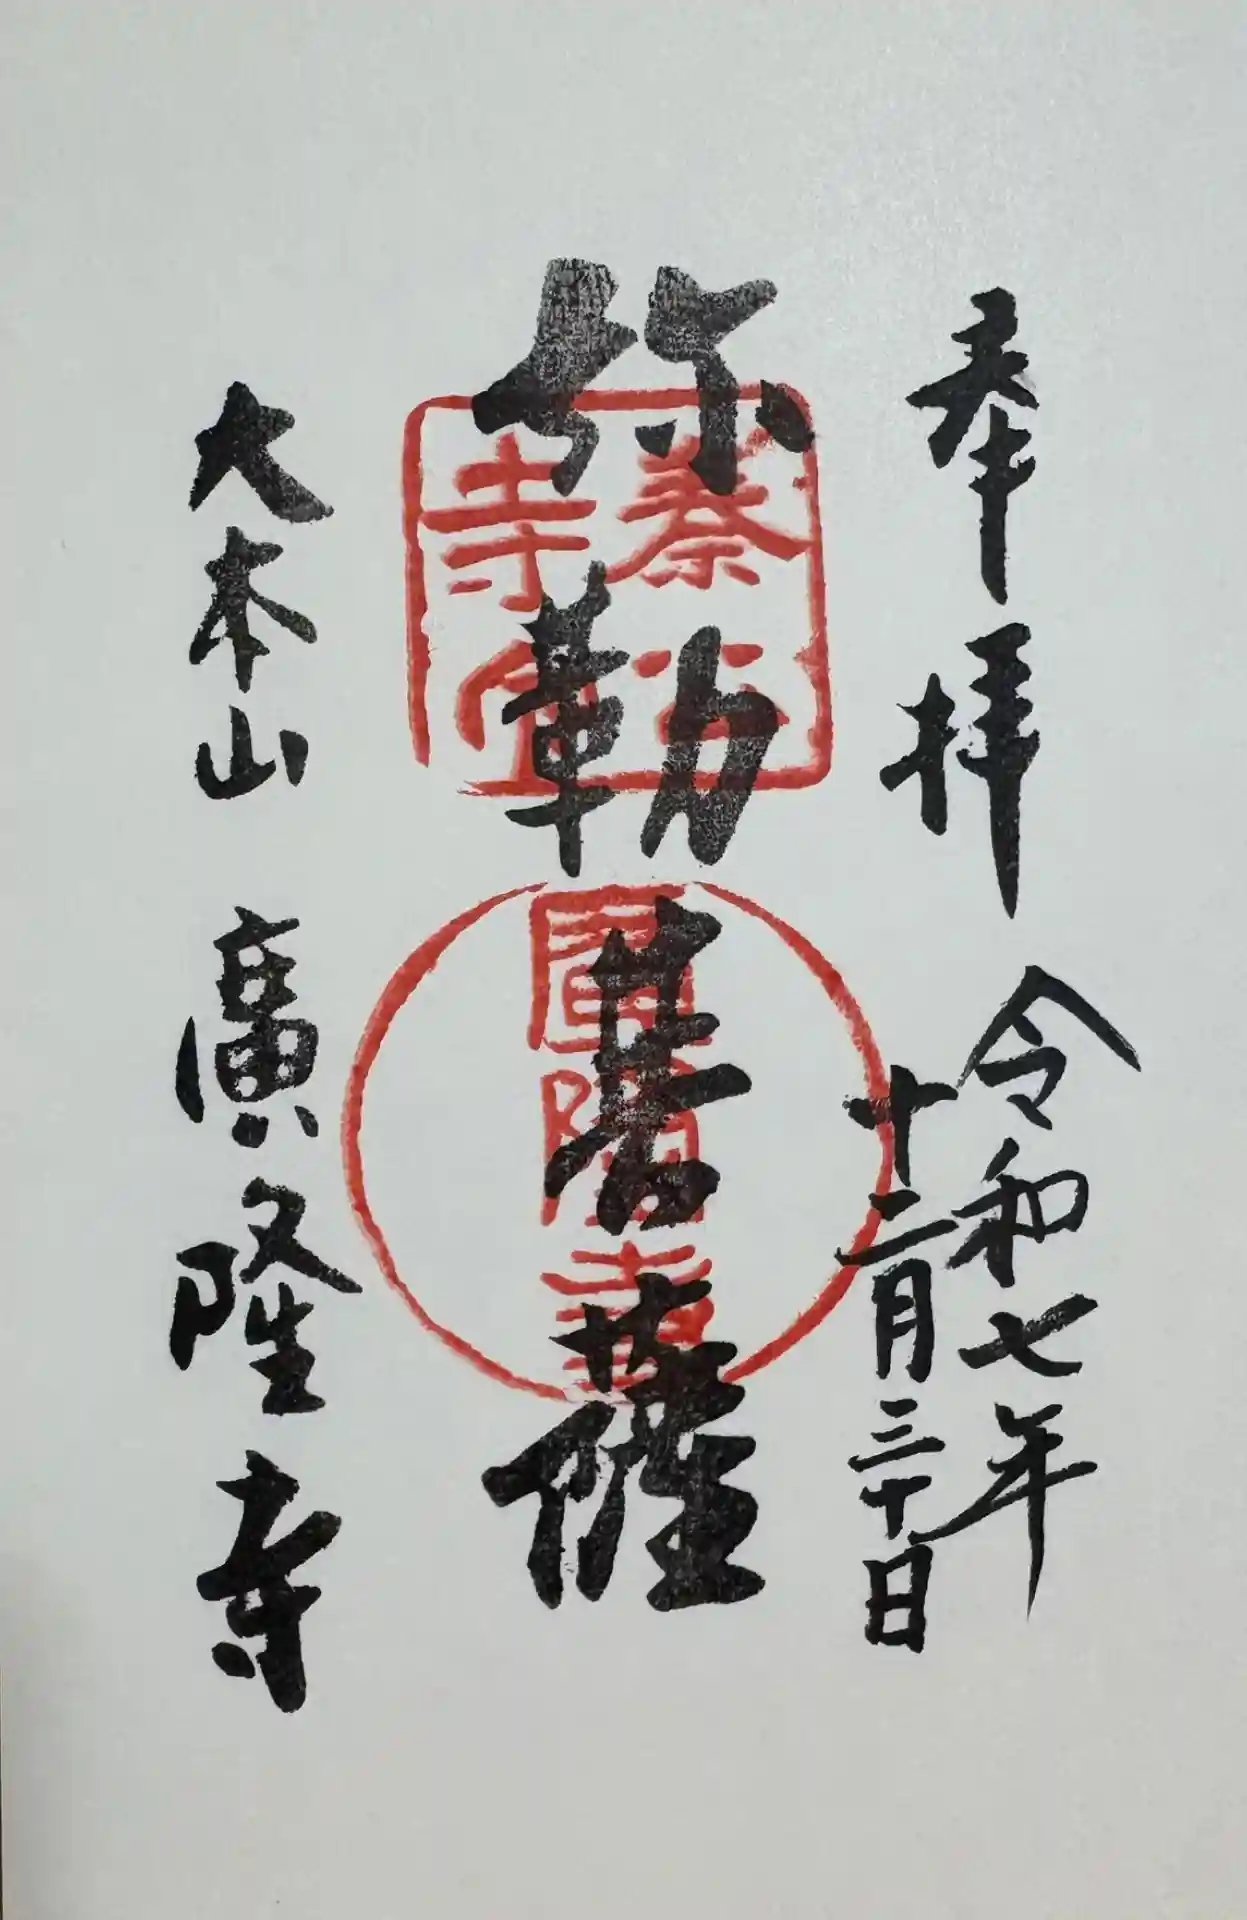 奉拝
令和七年
十二月三十日
弥勒菩薩
秦公
寺宣
廣隆寺
大本山 廣隆寺